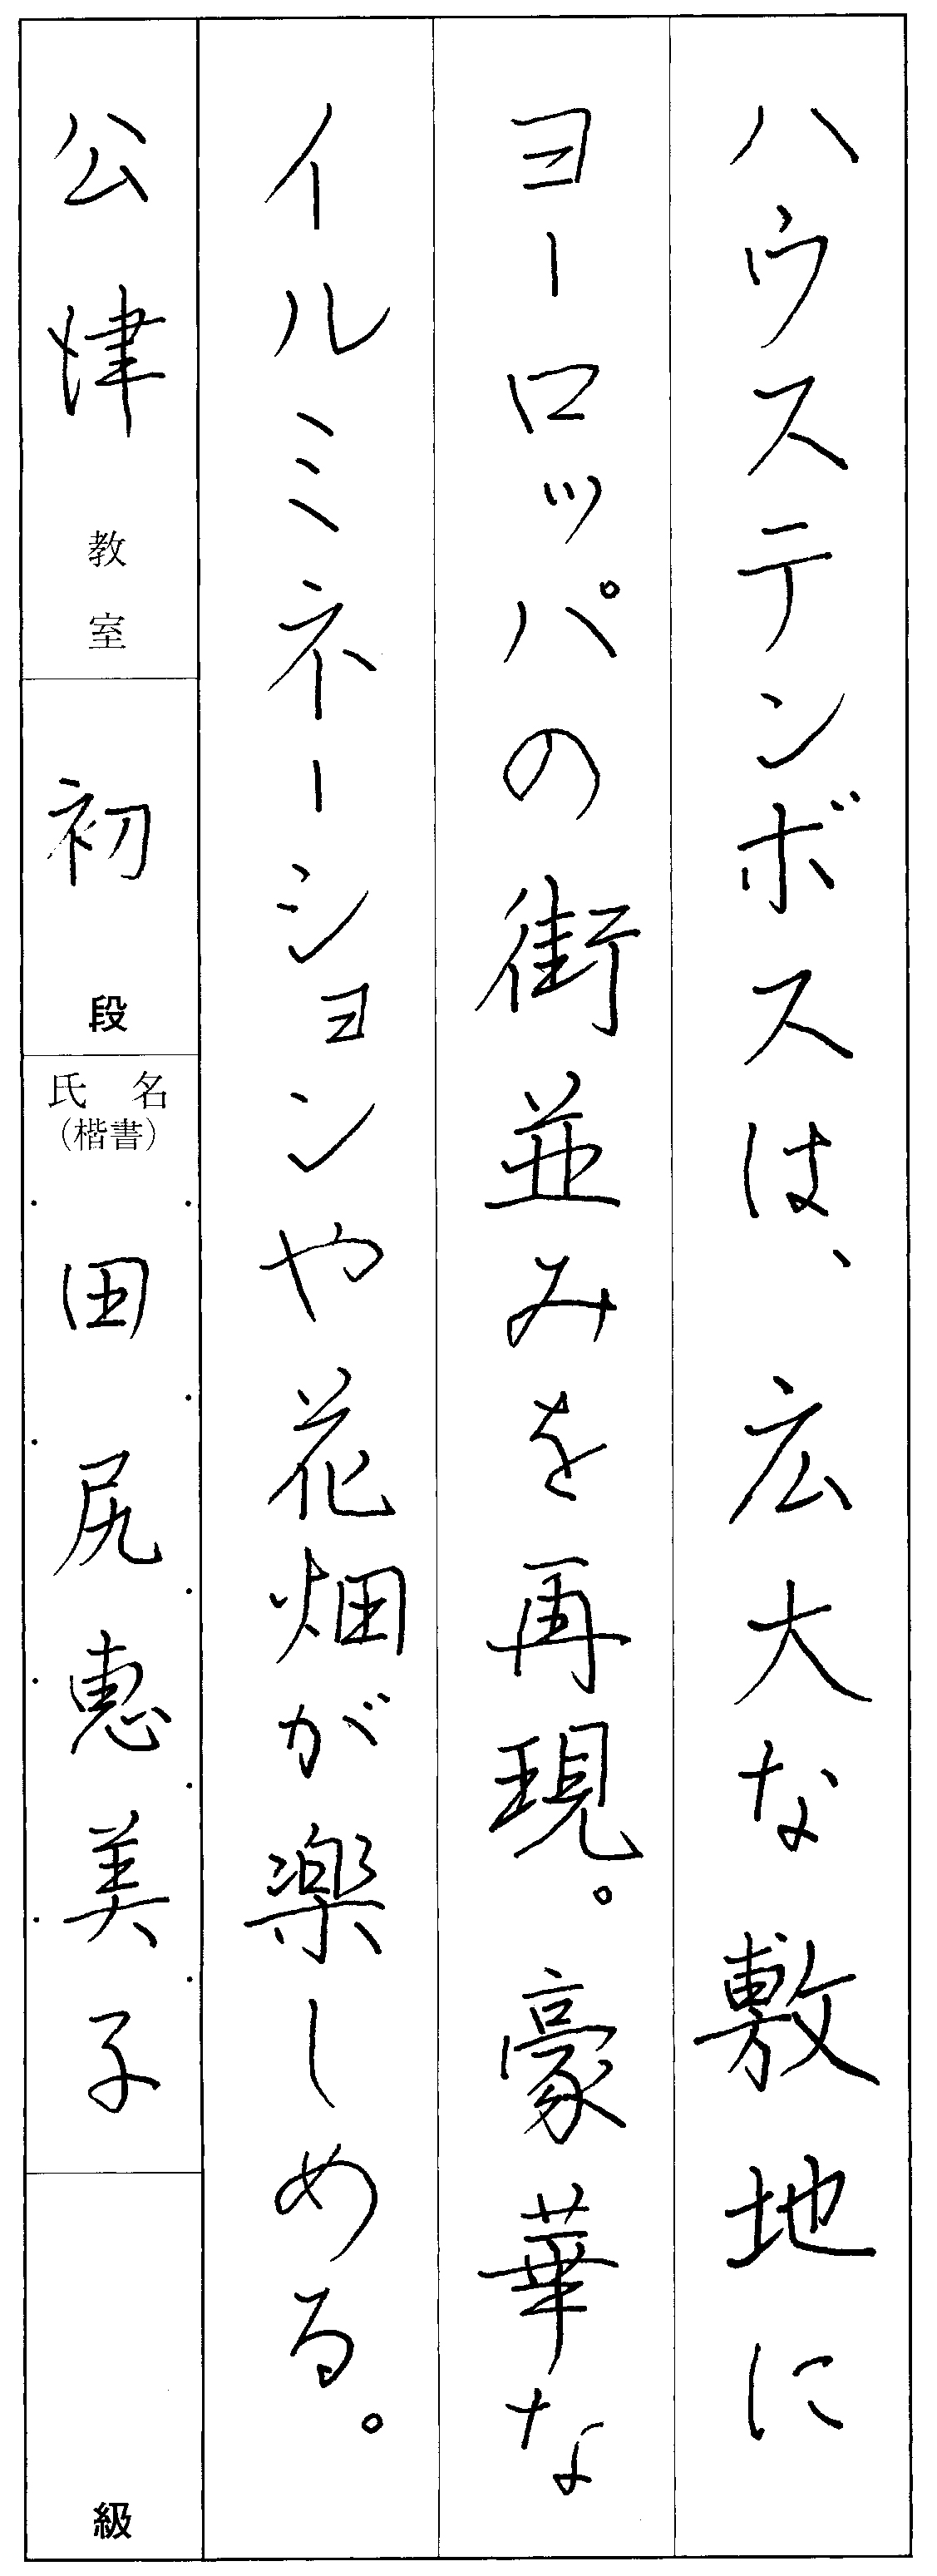 ハウステンボスは、広大な敷地に
ヨーロッパの街並みを再現。豪華な
イルミネーションや花畑が楽しめる。
公津教室
初段
氏名
(楷書)
田尻恵美子
級